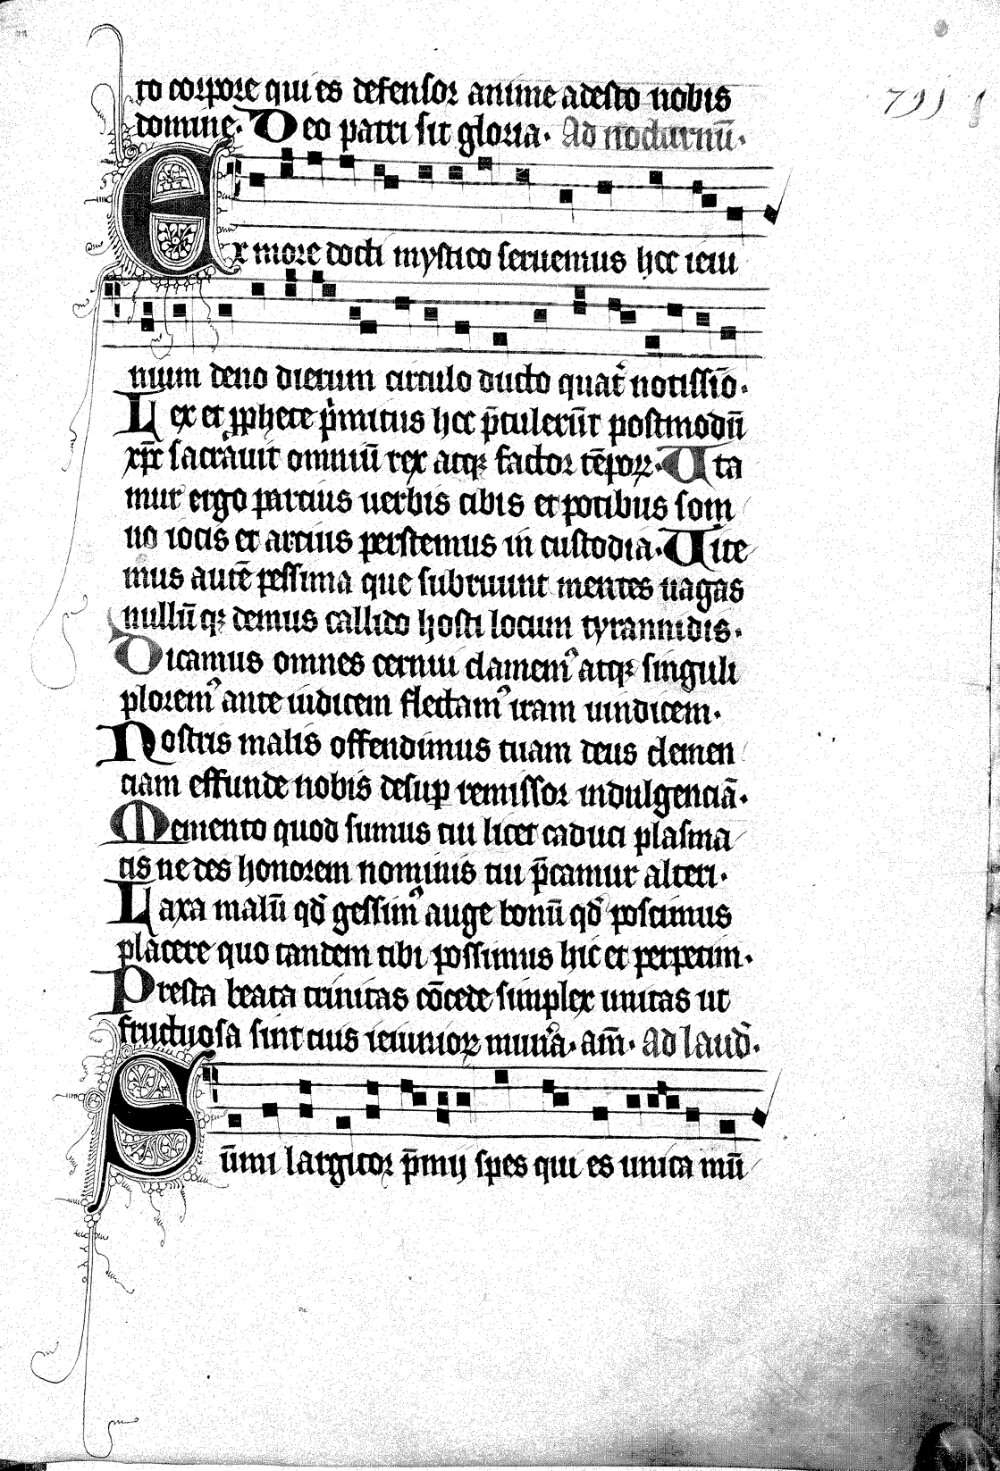 to corpore qui es defensor anime adesto nobis
domine. Deo patri sit gloria. Ad nocturnū.
Ex more docti mystico seruemus hec ieiu
nium deno dierum circulo ducto quat̉ notissīo.
Lex et ꝓphete p̉mitus hec p̄tulerūt postmodū
xp̄c sacrauit omniū rex atqꝫ factor tēpoꝝ. Uta
mur ergo parcius uerbis cibis et potibus som
no iocis et arcius perstemus in custodia. Uite
mus autē pessima que subruunt mentes uagas
nullū qꝫ demus callido hosti locum tyrannidis.
Dicamus omnes cernui clamemꝰ atqꝫ singuli
ploremꝰ ante iudicem flectamꝰ iram uindicem.
Nostris malis offendimus tuam deus clemen
ciam effunde nobis desuꝑ remissor indulgenciā.
Memento quod sumus tui licet caduci plasma
tis ne des honorem nominis tui p̄camur alteri.
Laxa malū qď gessimꝰ auge bonū qď poscimus
placere quo tandem tibi possimus hic et perpetim.
Presta beata trinitas cōcede simplex unitas ut
fructuosa sint tuis ieiunioꝝ mun̉a. am̄. Ad lauď.
Sūmi largitor p̄mij spes qui es unica mū